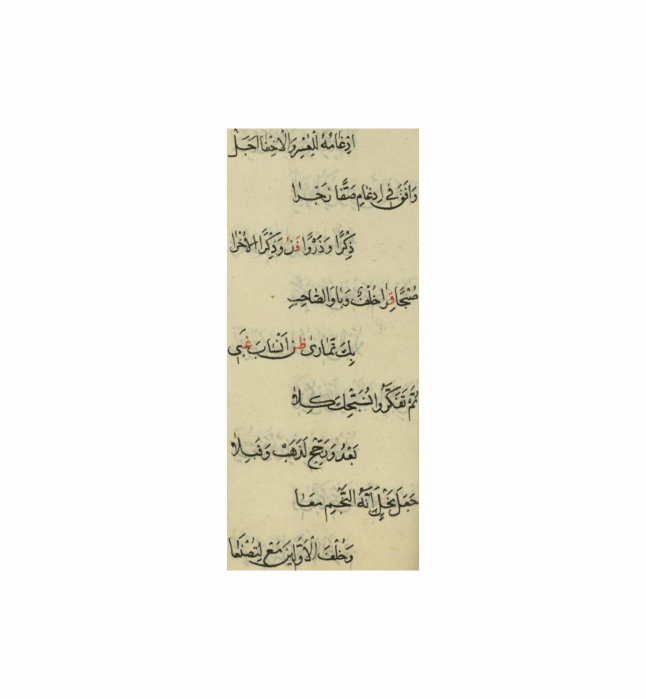 ادغامه للعسر والاخفا اجل
وافق في ادغام صفا زجرا
ذكرا وذروا فد وذكرا الاخرا
صبحا قرا خلف وبا والصاحب
بك تمارى ظن انساب غبي
ثم تفكروا نسبحك كلا
بعد ورجح لذهب وقبلا
جعل نحل انه النجم معا
وخلف الاولين مع لتصنعا